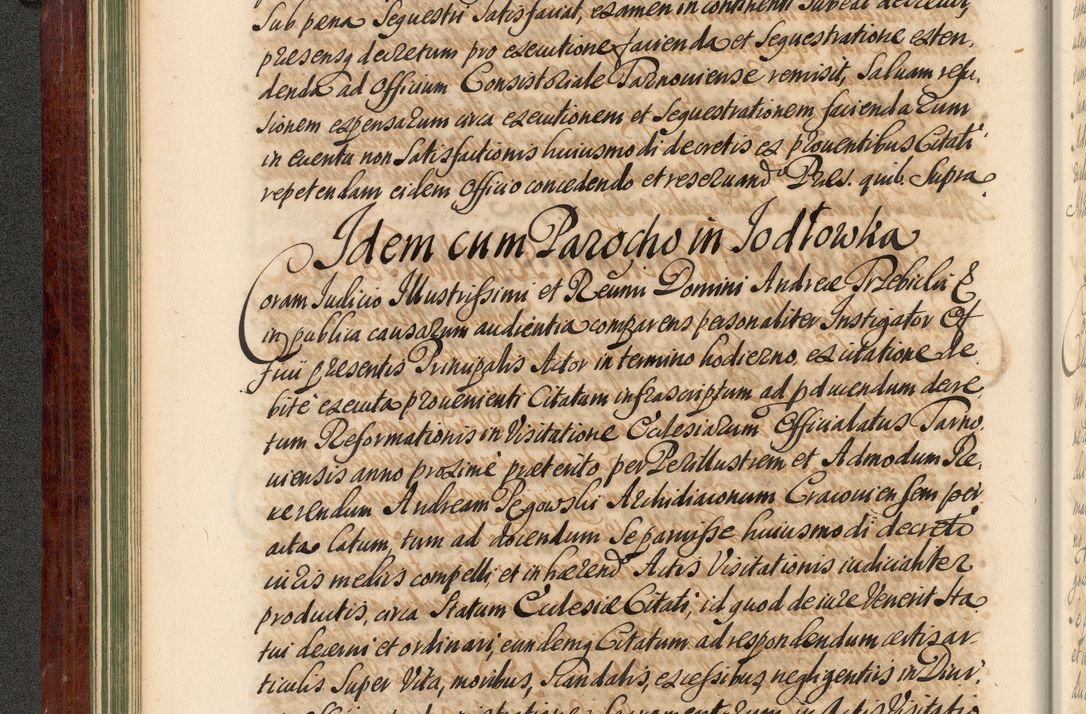 Sub pæna Sequestri Satisfaciat, examen in continenti Subeat decrevit,
præsensq decretum pro executione facienda et Sequestratione exten,
denda ad Officium Consistoriale Tarnoviense remisit, Salvam refu,
sionem expensarum circa executionem et Sequestrationem faciendarum
in eventu non Satisfactionis huiusmodi decretis ex proventibus Citati
repetendam eidem Officio concedendo et reservand Præs. quib. Supra.
Idem cum Parocho in Jodłowka
Coram Judicio Illustrissimi et Reumi Domini Andreæ Trzebicki E
in publica causarum audientia comparens personaliter Instigator Of
ficii præsentis Principalis Actor in termino hodierno, ex citatione de,
bite executa provenienti Citatum infrascriptum ad pducendum decre
tum Reformationis in Visitatione Ecclesiarum Officialatus Tarno,
viensis anno proxime præterito, per Perillustrem et Admodum Re,
verendum Andream Pegowski Archidiaconum Cracoviensem per
acta Latum, tum ad docendum Se paruisse huiusmodi decreto
iuris medys compelli, et in hærend Actis Visitationis iudicialiter
productis, circa Statum Ecclesiæ Citati, id quod de iure Venerit Sta
tui decerni et ordinari, eundemq Citatum ad respondendum certis ar,
ticulis Super Vita, moribus, Scandalis, excessibus, negligentiis in Divi,
officiis et administratione Sacramentorum in Actis Visitatio